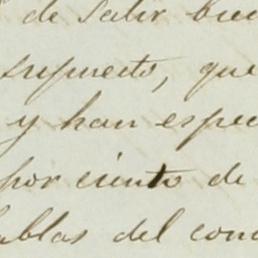 de salir bien
supuesto, que
y han espec
por ciento de
ablas del conc